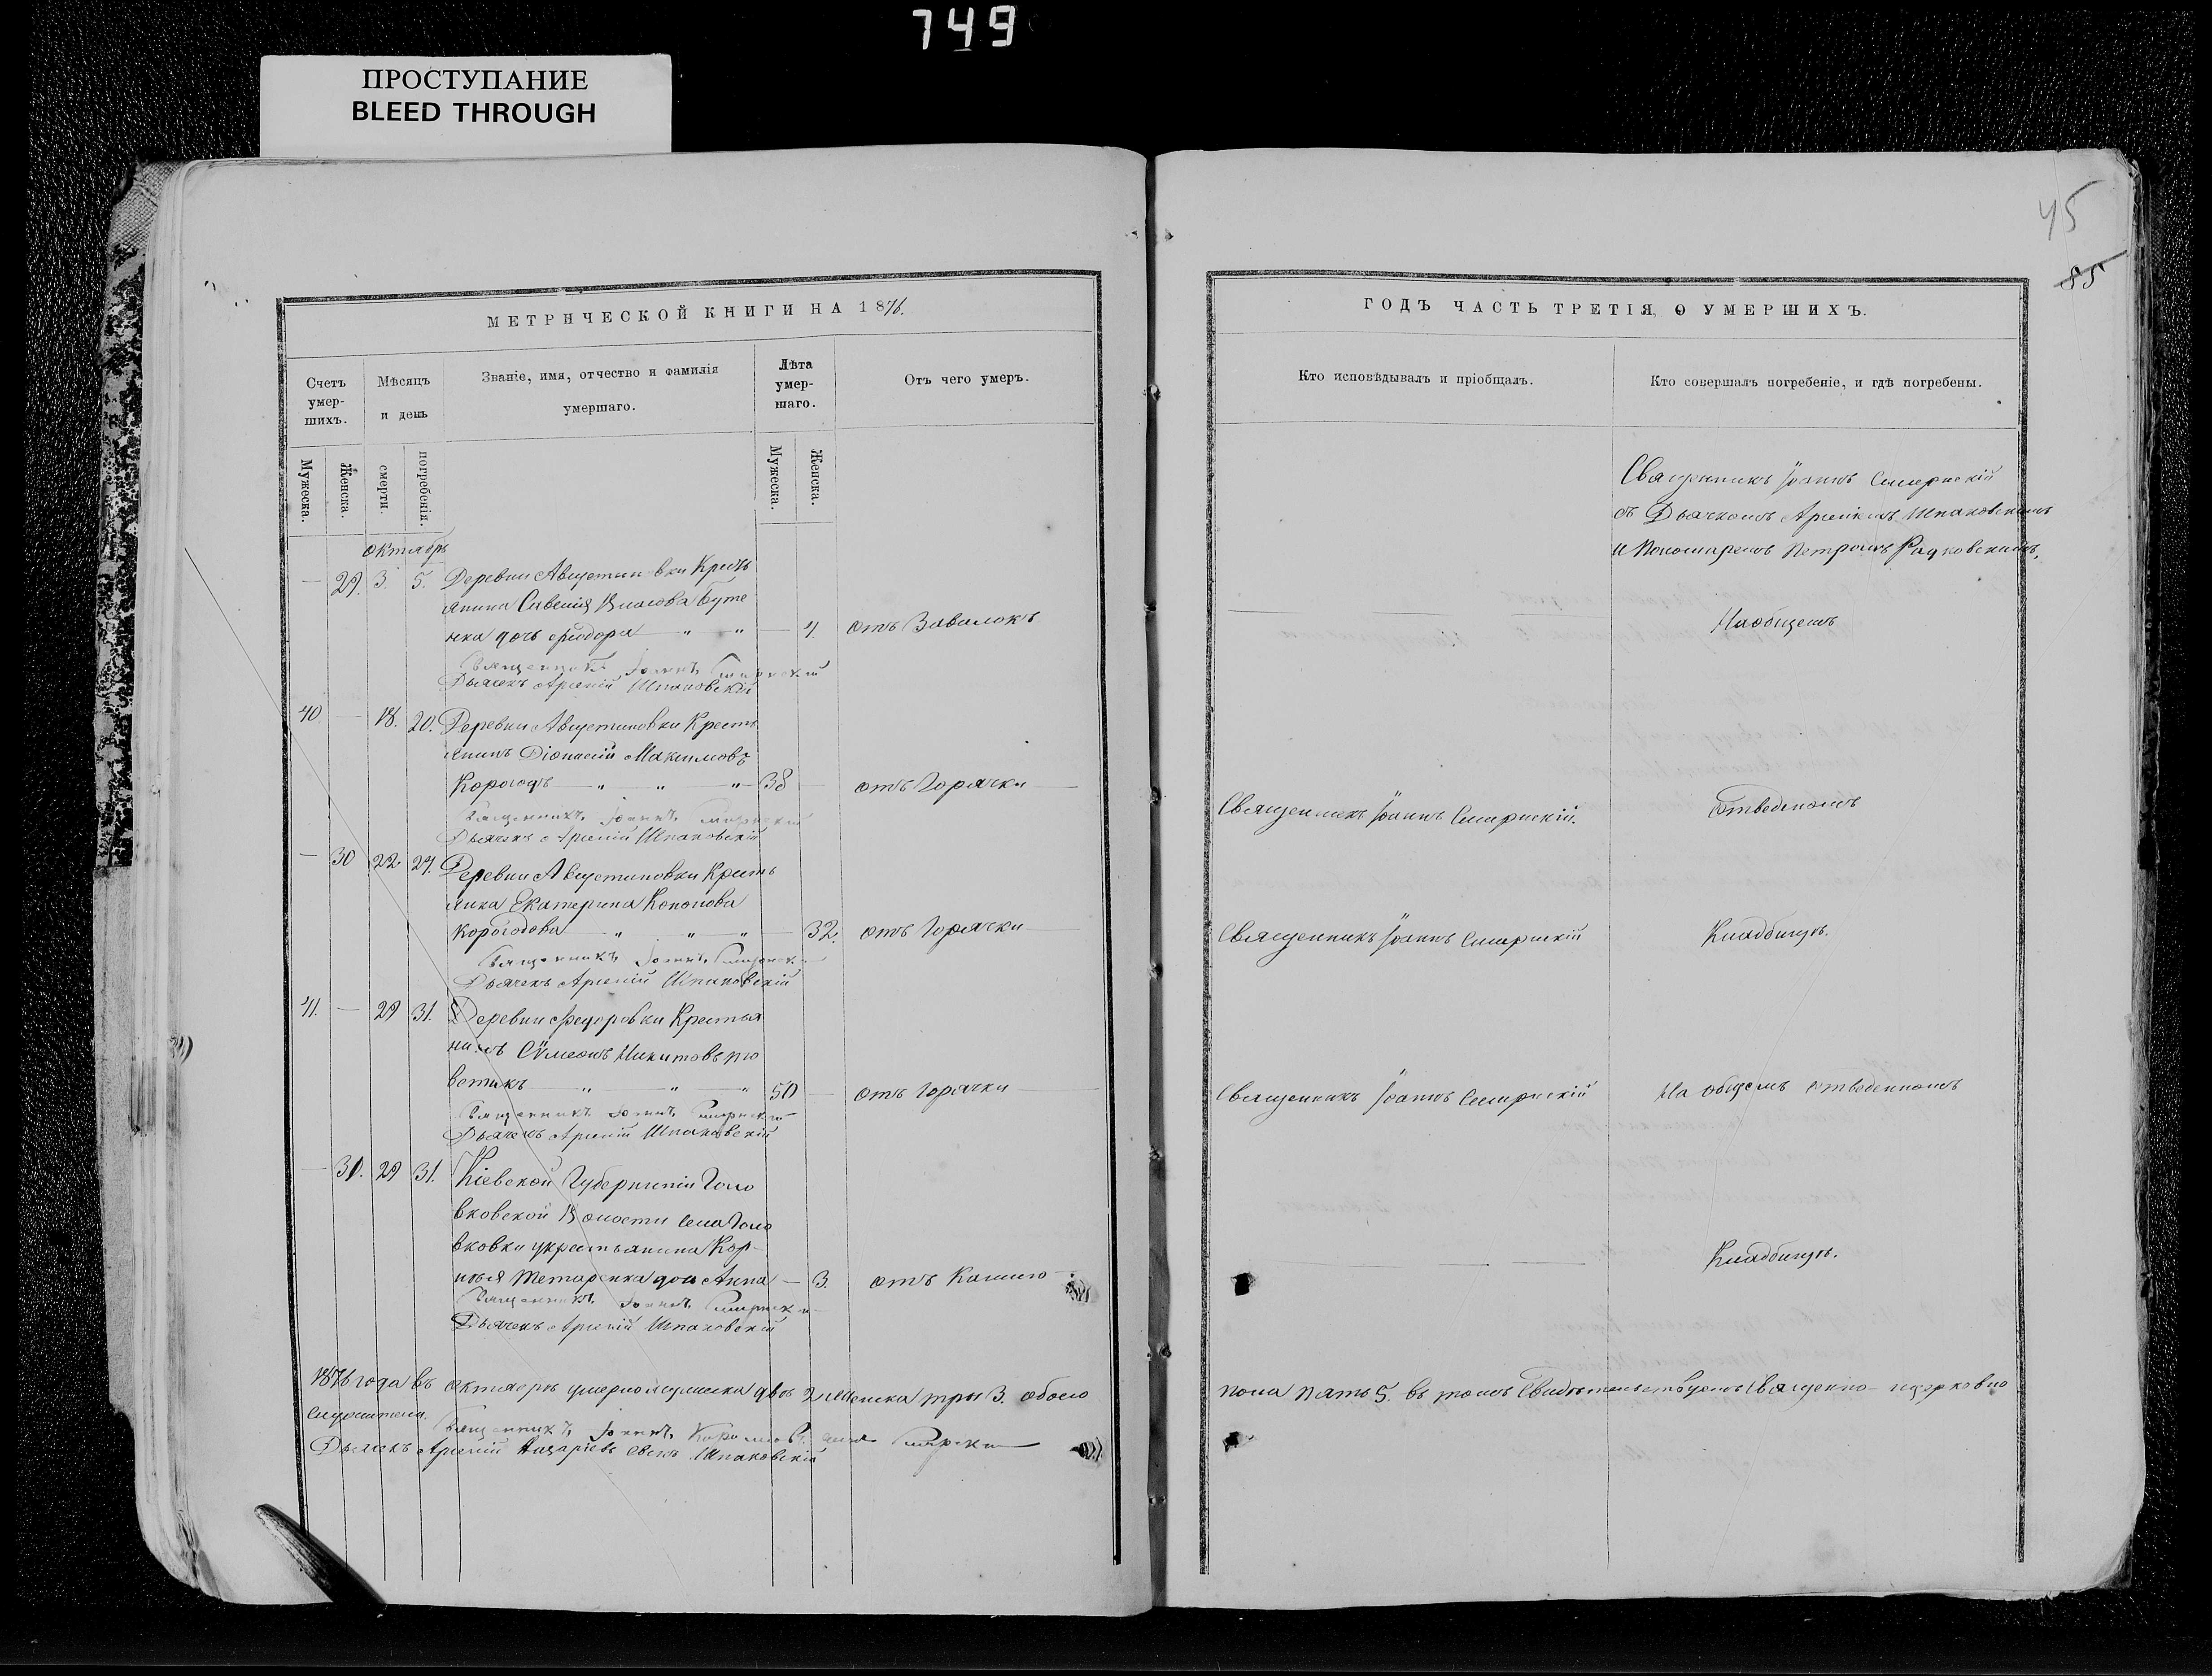 749
ПРОСТУПАНИЕ
BLEED THROUGH
45
85
МЕТРИЧЕСКОЙ КНИГИ НА 1876.
Счетъ умер-шихъ.
Мѣсяцъ и день
Званіе, имя, отчество и фамилія
умершаго.
Лѣта умер-шаго.
Отъ чего умеръ.
Мужеска.
Женска.
смерти.
погребенія.
Мужеска.
Женска.
Октябрь
29. 3. 5. Деревни Августиновки Кресть
янина Власова Буте
нка дочь Ѳеодора " " 4. отъ Завалокъ
Священникъ Іоаннъ Смирнскій
Дьячекъ Арсеній Шпаковскій
40 18. 20. Деревни Августиновки Кресть
янинъ Діонисій Максимовъ
Корогодъ " " " 38 отъ Горячки
Священникъ Іоаннъ Смирнскій
Дьячекъ Арсеній Шпаковскій
30 22. 24. Деревни Августиновки Кресть
янка Екатерина Кононова
Корогодова " " " 32. отъ Горячки
Священникъ Іоаннъ Смирнскій
Дьячекъ Арсеній Шпаковскій
41. 29 31. Деревни Федоровки Крестья
нинъ Сѷмеонъ Никитовъ
" " " 50 отъ Горячки
Священникъ Іоаннъ Смирнскій
Дьячекъ Арсеній Шпаковскій
31. 29 31. Кіевской Губерніи Голо
вковской Волости Села Голо
вковки у крестьянина Кор
нѣя Тетаренка дочь Анна 3. отъ Кашлю
Священникъ Іоаннъ Смирнскій
Дьячекъ Арсеній Шпаковскій
1876 года въ Октябрѣ умерло мужеска два 2 женска три 3. обоего
Священникъ Іоаннъ Смирнскій
Дьячекъ Арсеній Азаріевъ сынъ Шпаковскій
ГОДЪ ЧАСТЬ ТРЕТІЯ, О УМЕРШИХЪ.
Кто исповѣдывалъ и пріобщалъ.
Кто совершалъ погребеніе, и гдѣ погребены.
Священникъ Іоаннъ Смирнскій
съ Дьячкомъ Арсеніемъ Шпаковскимъ
и Пономаремъ Петромъ Радковскимъ,
На общемъ
Священникъ Іоаннъ Смирнскій. Отведеномъ
Священникъ Іоаннъ Смирнскій Кладбищѣ.
Священникъ Іоаннъ Смирнскій На общемъ отведенномъ
Кладбищѣ.
пола пять 5. въ томъ Свидѣтельствуемъ Священно-церковно
служители.